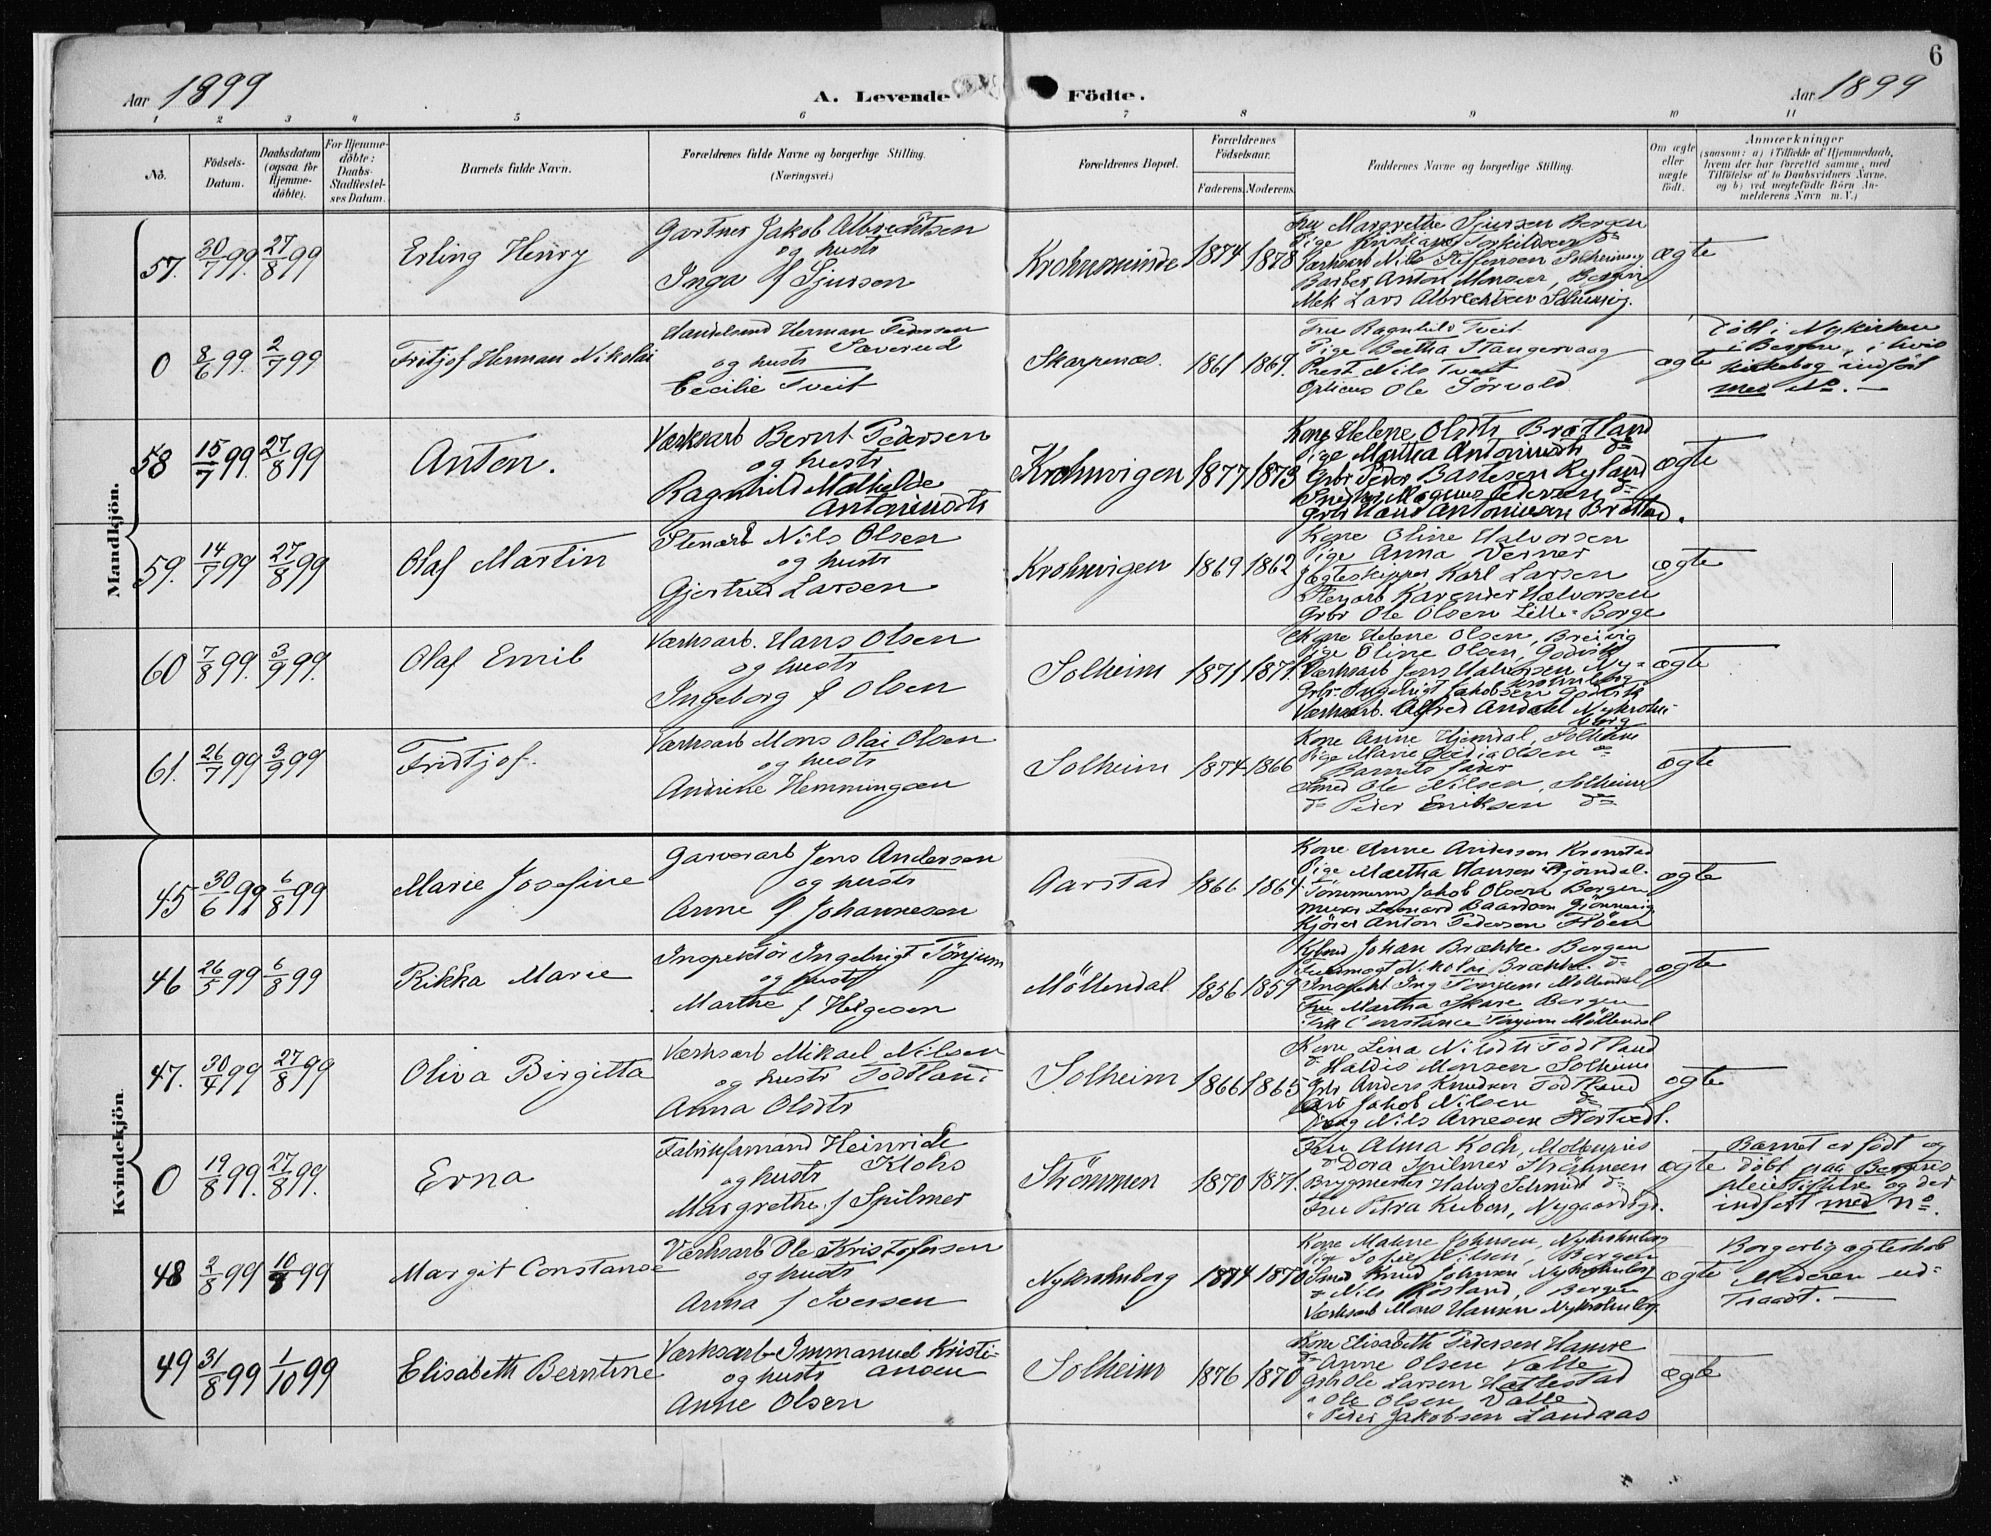 6
Aar 1899
A. Levende Födte.
Aar 1899
1 2 3 4 5 6 7 8 9 10 11
No.
Födsels-Datum.
Daabsdatum (ogsaa for Hjemmedöbte).
For Hjemmedöbte: Daabs-Stadfæstelses Datum.
Barnets fulde Navn.
Forældrenes fulde Navne og borgerlige Stilling.
(Næringsvei.)
Forældrenes Bopæl.
Forældrenes Födselsaar.
Faderens. Moderens.
Faddernes Navne og borgerlige Stilling.
Om ægte eller uægte födt.
Anmærkninger
(saasom: a) i Tilfælde af Hjemmedaab, hvem der har forrettet samme, med Tilföielse af to Daabsvidners Navne, og b) ved uægtefödte Börn Anmelderens Navn m. V.)
Mandkjön.
57. 30/7 99. 27/8 99 Erling Henry
Gartner Jakob Albrechtsen
og hustr
Inga f Sjursen
Krohnsminde 1874 1878
Fru Margrethe Sjursen Bergen
Pige Kristiane Torkildsen do
Værksarb Nils Steffensen Solheimsvig
Barber Anton Monsen, Bergen
Mek Lars Albrechtsen Solheimsvig.
ægte
0 8/6 99. 2/7 99 Fritjof Herman Nikolai
Handelsmd Herman Pedersen
og hustr Sæverud
Cecilie Tveit
Skarpenæs. 1861 1869.
Fru Ragnhild Tveit
Pige Bertha Stangervaag
Prest Nils Tveit
Opticus Ole Sörvold
ægte
Döbt i Nykirken
i Bergen, i hvis
kirkebog indfört
med No. —
58 15/7 99 27/8 99 Anton.
Værksarb Bernt Pedersen
og hustr
Ragnhild Mathilde
Antonisdtr
Krohnvigen 1877 1873
Kone Helene Olsdtr Bratland
Pige Martha Antonisdtr do
Grbr Peder Bastesen Ryland
Snedker Magnus Pedersen do
Grbr Hans Antonisen Bratland.
ægte
59. 14/7 99 27/8 99 Olaf Martin
Stenarb Nils Olsen
og hustr
Gjertrud Larsen
Krohnvigen 1869 1862
Kone Oline Halvorsen
Pige Anna Verner
Jægteskipper Karl Larsen
Stenarb Karender Halvorsen
Grbr Ole Olsen Lille-Borge
ægte
60 7/8 99. 3/9 99. Olaf Emil
Værksarb. Hans Olsen
og hustr
Ingeborg f Olsen
Solheim 1871 1871.
Kone Helene Olsen, Breivig
Pige Oline Olsen, Godvik
Værksarb Jens Halvorsen Ny-
krohnborg
Grbr. Ingebrigt Jakobsen Godvik
Værksarb. Alfred Andal Nykrohn-
borg
ægte
61. 26/7 99 3/9 99 Fridtjof.
Værksarb Mons Olai Olsen
og hustr
Andrine Hemmingsen
Solheim 1874 1866
Kone Anne Hjemdal, Solheim
Pige Marie Olsen do
Barnets fader
Smed Ole Nilsen, Solheim
do Peder Eriksen do
ægte
Kvindekjön.
45 30/6 99 6/8 99 Marie Josefine
Garverarb Jens Andersen
og hustr
Anne f Johannesen
Aarstad 1866 1864.
Kone Anne Andersen Kronstad
Pige Martha Hansen
Tömmermd Jakob Olsen Bergen
Murer Leonard Baardsen
Kjörer Anton Pedersen Flöen
ægte
46 26/5 99 6/8 99 Rikka Marie
Inspektör Ingebrigt Tönjum
og hustr
Marthe f Helgesen
Möllendal 1856 1859
Johan Brække Bergen
Nikolai Brække do
Inspekt Ing Tönjum Möllendal
Fru Martha Skare Bergen
Frk Constance Tönjum Möllendal
ægte
47. 30/4 99 27/8 99 Oliva Birgitta
Værksarb Mikael Nilsen
og hustr Todtland
Anna Olsdtr
Solheim 1866 1865
Kone Lina Nilsdtr Todtland
do Haldis Monsen Solheim
Grbr Anders Knudsen Todtland
Arb Jakob Nilsen do
Nils Arnesen
ægte
0 19/8 99. 27/8 99. Erna
Fabrikformand Heinrich
og hustr Klohs
Margrethe f Spilmer
Strömmen 1870 1871.
Fru Alma Koch,
do Dora Spilmer Strömmen
Brygmester Halvor Schmidt do
Fru Petra Kuben, Nygaardsgt.
ægte
Barnet er födt og
döbt paa Bergens
pleiestiftelse og der
indfört med No.
48 2/8 99 10/8 99 Margit Constance
Værksarb Ole Kristofersen
og hustr
Anna f Iversen
Nykrohnborg 1874 1870
Kone Malene Johnsen, Nykrohnborg
Pige Sofie Nilsen, Bergen
Smed Knud Johnsen Nykrohnborg
do Nils Röstand, Bergen
Værksarb Mons Hansen Nykrohnborg
ægte
Borgerlig ægteskab
Moderen ud-
traadt. —
49 31/8 99 1/10 99 Elisabeth Berntine
Værksarb Immanuel Kristi-
og hustr ansen
Anne Olsen
Solheim 1876 1870
Kone Elisabeth Pedersen Hamre
do Anne Olsen Valle
Grb Ole Larsen Hatlestad
" Ole Olsen Valle
" Peder Jakobsen Landaas
ægte